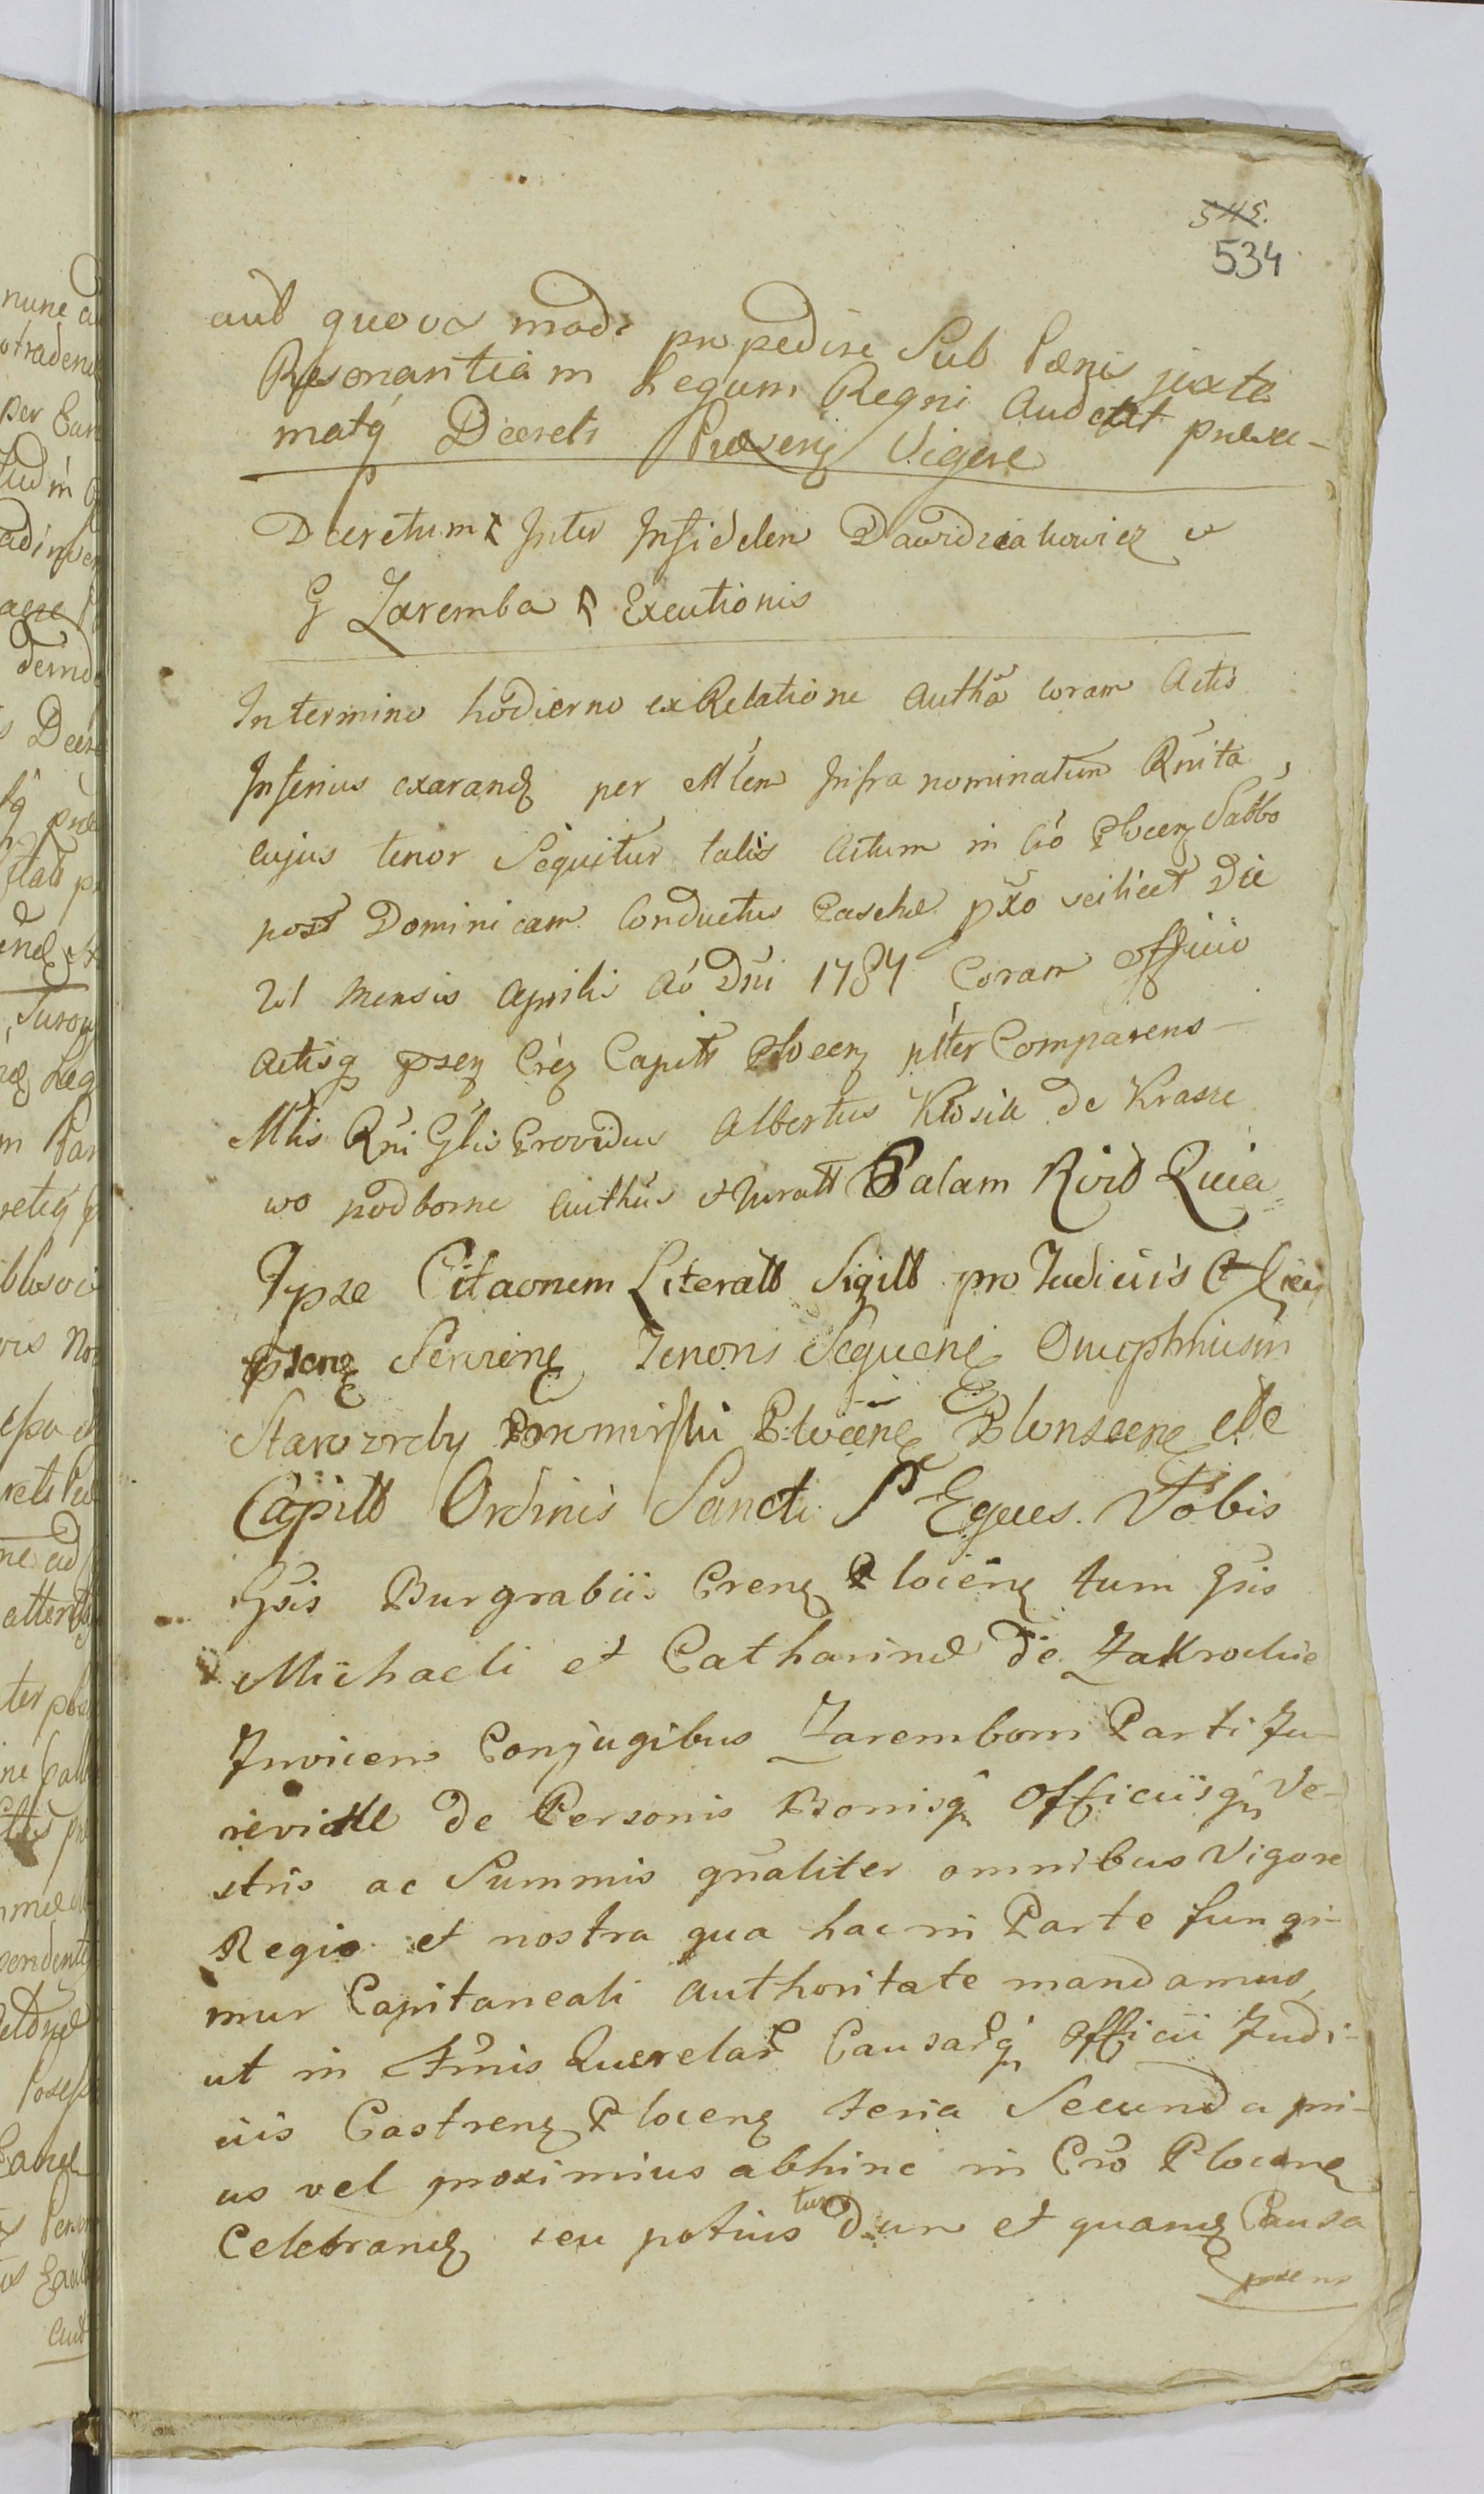 545.
534
aut quovis modo propedire Sub Pænis juxta
Resonantiam Legum Regni Audeat præsu-
matq Decreti Præseng Vigore
Decretum Inter Infidelem Dawidziakowicz et
G Zaremba Executionis
In termino hodierno ex Relatione Authã coram Actis
Inferius exarandg per Mlem Infra nominatum Rnita,
cujus tenor Sequitur talis Actum in Cró Plocen Sabbo
post Dominicam Conductus Paschæ pxo scilicet Die
21 mensis Aprilis Aó Dni 1787 Coram Officio
Actisq psen Cren Capitt Plocen pltter Comparens
Mlis Rni Glis Providus Albertus Kłosik de Krasze
wo podborne Authus et Juratt Palam Rvit Quia
Ipse Citaonem Literatt Sigitt pro Judiciis
pseng Servieng Tenoris Sequeng Onuphrius in
Starozreby Bromirski Plocéng Plonsceng etc
Capitt Ordinis Sancti S Eques. Vobis
Gsis Burgrabiis Creng Plocéng tum Gsis
Michaeli et Catharinæ de Zakrockie
Invicem Conjugibus Zarembom Parti Ju-
revictæ de Personis Bonisq Officiisq Ve-
stris ac Summis gnaliter omnibus Vigore
Regio et nostra qua hac in Parte fungi-
mur Capitaneali Authoritate mandamus,
ut in Tmis Querelar Causarq Officii Judi-
ciis Castreng Ploceng feria Secunda pri-
us vel proximius abhinc in Cró Ploceng
Celebrandg seu potius tunc dum et quandg Causa
præns